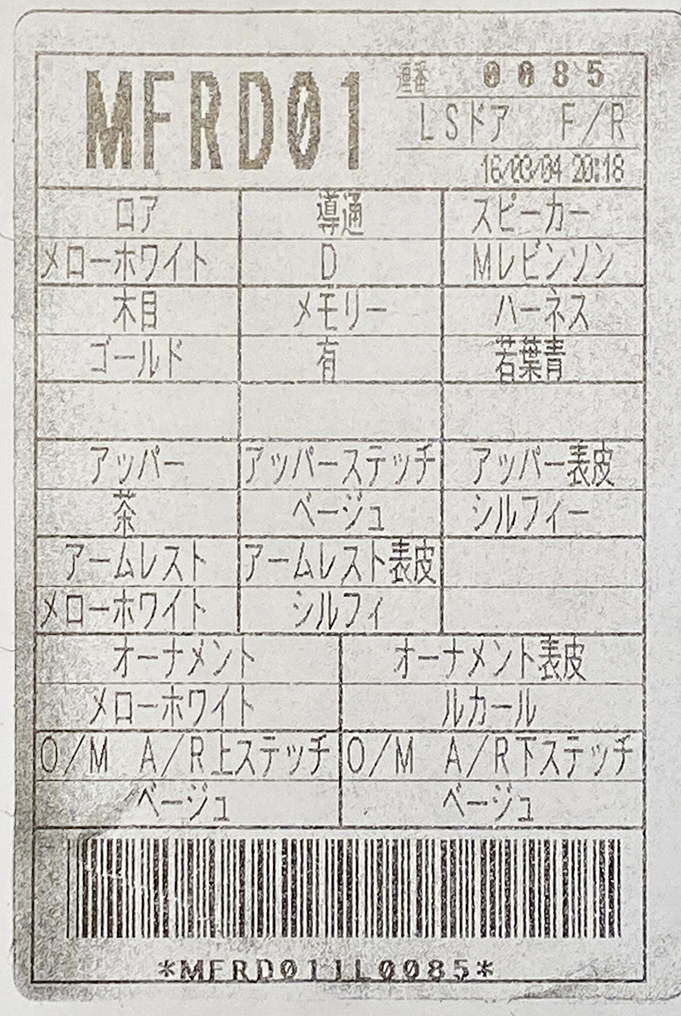 MFRD01 連番 0085
LSドア F/R
16/03/04 20:18
ロア 導通 スピーカー
メローホワイト D Mレビンソン
木目 メモリー ハーネス
ゴールド 有 若葉青
アッパー アッパーステッチ アッパー表皮
茶 ベージュ シルフィー
アームレスト アームレスト表皮
メローホワイト シルフィ
オーナメント オーナメント表皮
メローホワイト ルカール
O/M A/R上ステッチ O/M A/R下ステッチ
ベージュ ベージュ
*MFRD011L0085*